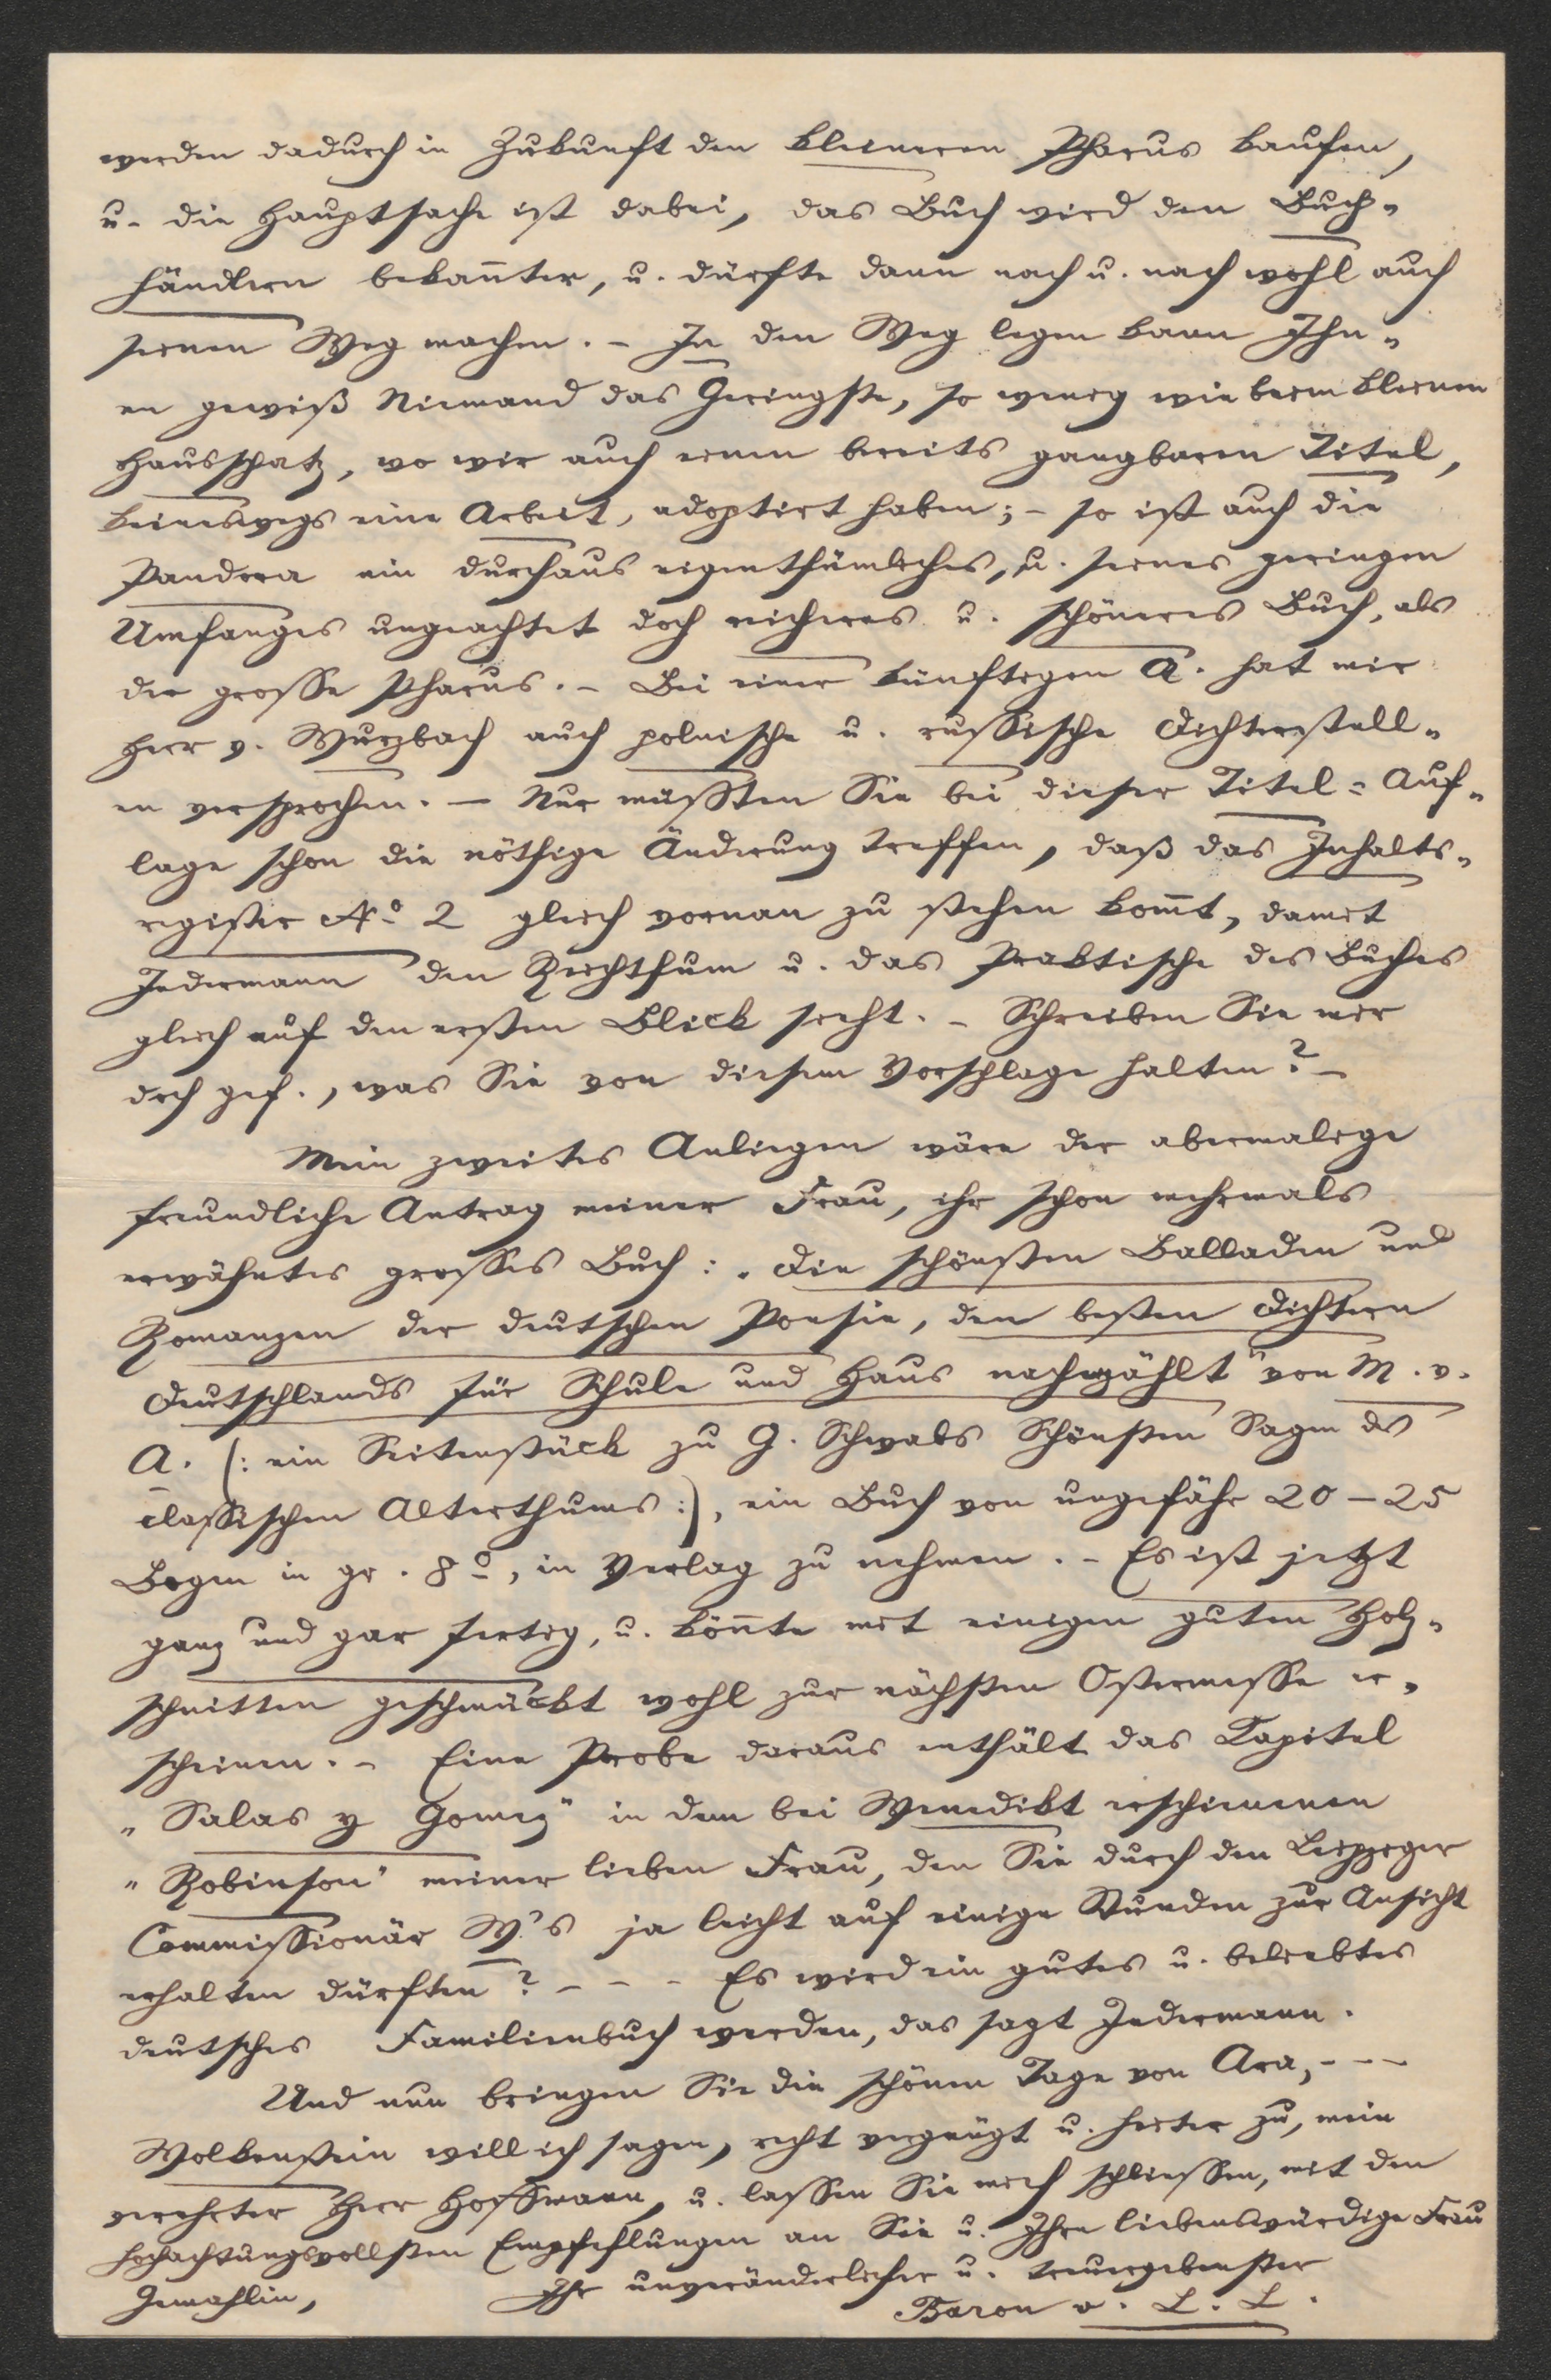 werden dadurch in Zukunft den kleineren Pharus kaufen,
u. die Hauptsache ist dabei, das Buch wird den Buch-
händlern bekan̄ter, u. dürfte dann nach u. nach wohl auch
seinen Weg machen. – In den Weg legen kann Ihn-
en gewiß Niemand das Geringste, so wenig wie beim kleinen
Hausschatz, wo wir auch einen bereits gangbaren Titel,
keineswegs eine Arbeit, adoptirt haben; – so ist auch die
Pandora ein durchaus eigenthümliches, u. seines geringen
Umfanges ungeachtet doch reicheres u. schöneres Buch, als
der grosse Pharus. – Bei einer künftigen A. hat mir
Herr v. Wurzbach auch polnische u. russische Dichterstell-
en versprochen. – Nur müssten Sie bei dieser Titel-Auf-
lage schon die nöthige Änderung treffen, daß das Inhalts-
register No 2 gleich vornan zu stehen kom̄t, damit
Jedermann den Reichthum u. das Praktische des Buches
gleich auf den ersten Blick sieht. – Schreiben Sie mir
doch gef., was Sie von diesem Vorschlage halten? –
Mein zweites Anliegen wäre der abermalige
freundliche Antrag meiner Frau, ihr schon mehrmals
erwähntes grosses Buch: „Die schönsten Balladen und
Romanzen der deutschen Poesie, den besten Dichtern
Deutschlands für Schule und Haus nacherzählt" von M. v.
A. (: ein Seitenstück zu G. Schwabs Schönsten Sagen des
classischen Alterthums :), ein Buch von ungefähr 20 – 25
Bogen in gr. 8o, in Verlag zu nehmen. – Es ist jetzt
ganz und gar fertig, u. kön̄te mit einigen guten Holz-
schnitten geschmückt wohl zur nächsten Ostermesse er-
scheinen. – Eine Probe daraus enthält das Kapitel
„Salas y Gomez" in dem bei Wenedikt erschienenen
„Robinson" meiner lieben Frau, den Sie durch den Leipziger
Commissionär W.'s ja leicht auf einige Stunden zur Ansicht
erhalten dürften? – – – Es wird ein gutes u. beliebtes
deutsches Familienbuch werden, das sagt Jedermann.
Und nun bringen Sie die schönen Tage von Ara, – – –
Wolkenstein will ich sagen, recht vergnügt u. heiter zu, mein
verehrter Herr Hoffmann, u. lassen Sie mich schliessen, mit den
hochachtungsvollsten Empfehlungen an Sie u. Ihre liebenswürdige Frau
Gemahlin, Ihr unveränderlicher u. treuergebenster
Baron v. L. L.